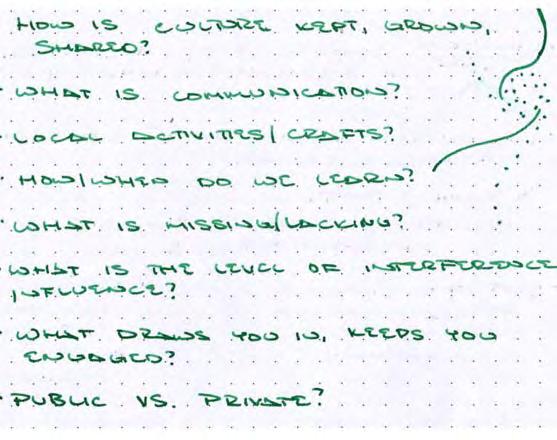 HOW IS CULTURE KEPT, GROWN,
SHARED?
WHAT IS COMMUNICATION?
LOCAL ACTIVITIES/CRAFTS?
HOW/WHEN DO WE LEARN?
WHAT IS MISSING/LACKING?
WHAT IS THE LEVEL OF INTERFERENCE
INFLUENCE?
WHAT DRAWS YOU IN, KEEPS YOU
ENGAGED?
PUBLIC VS. PRIVATE?